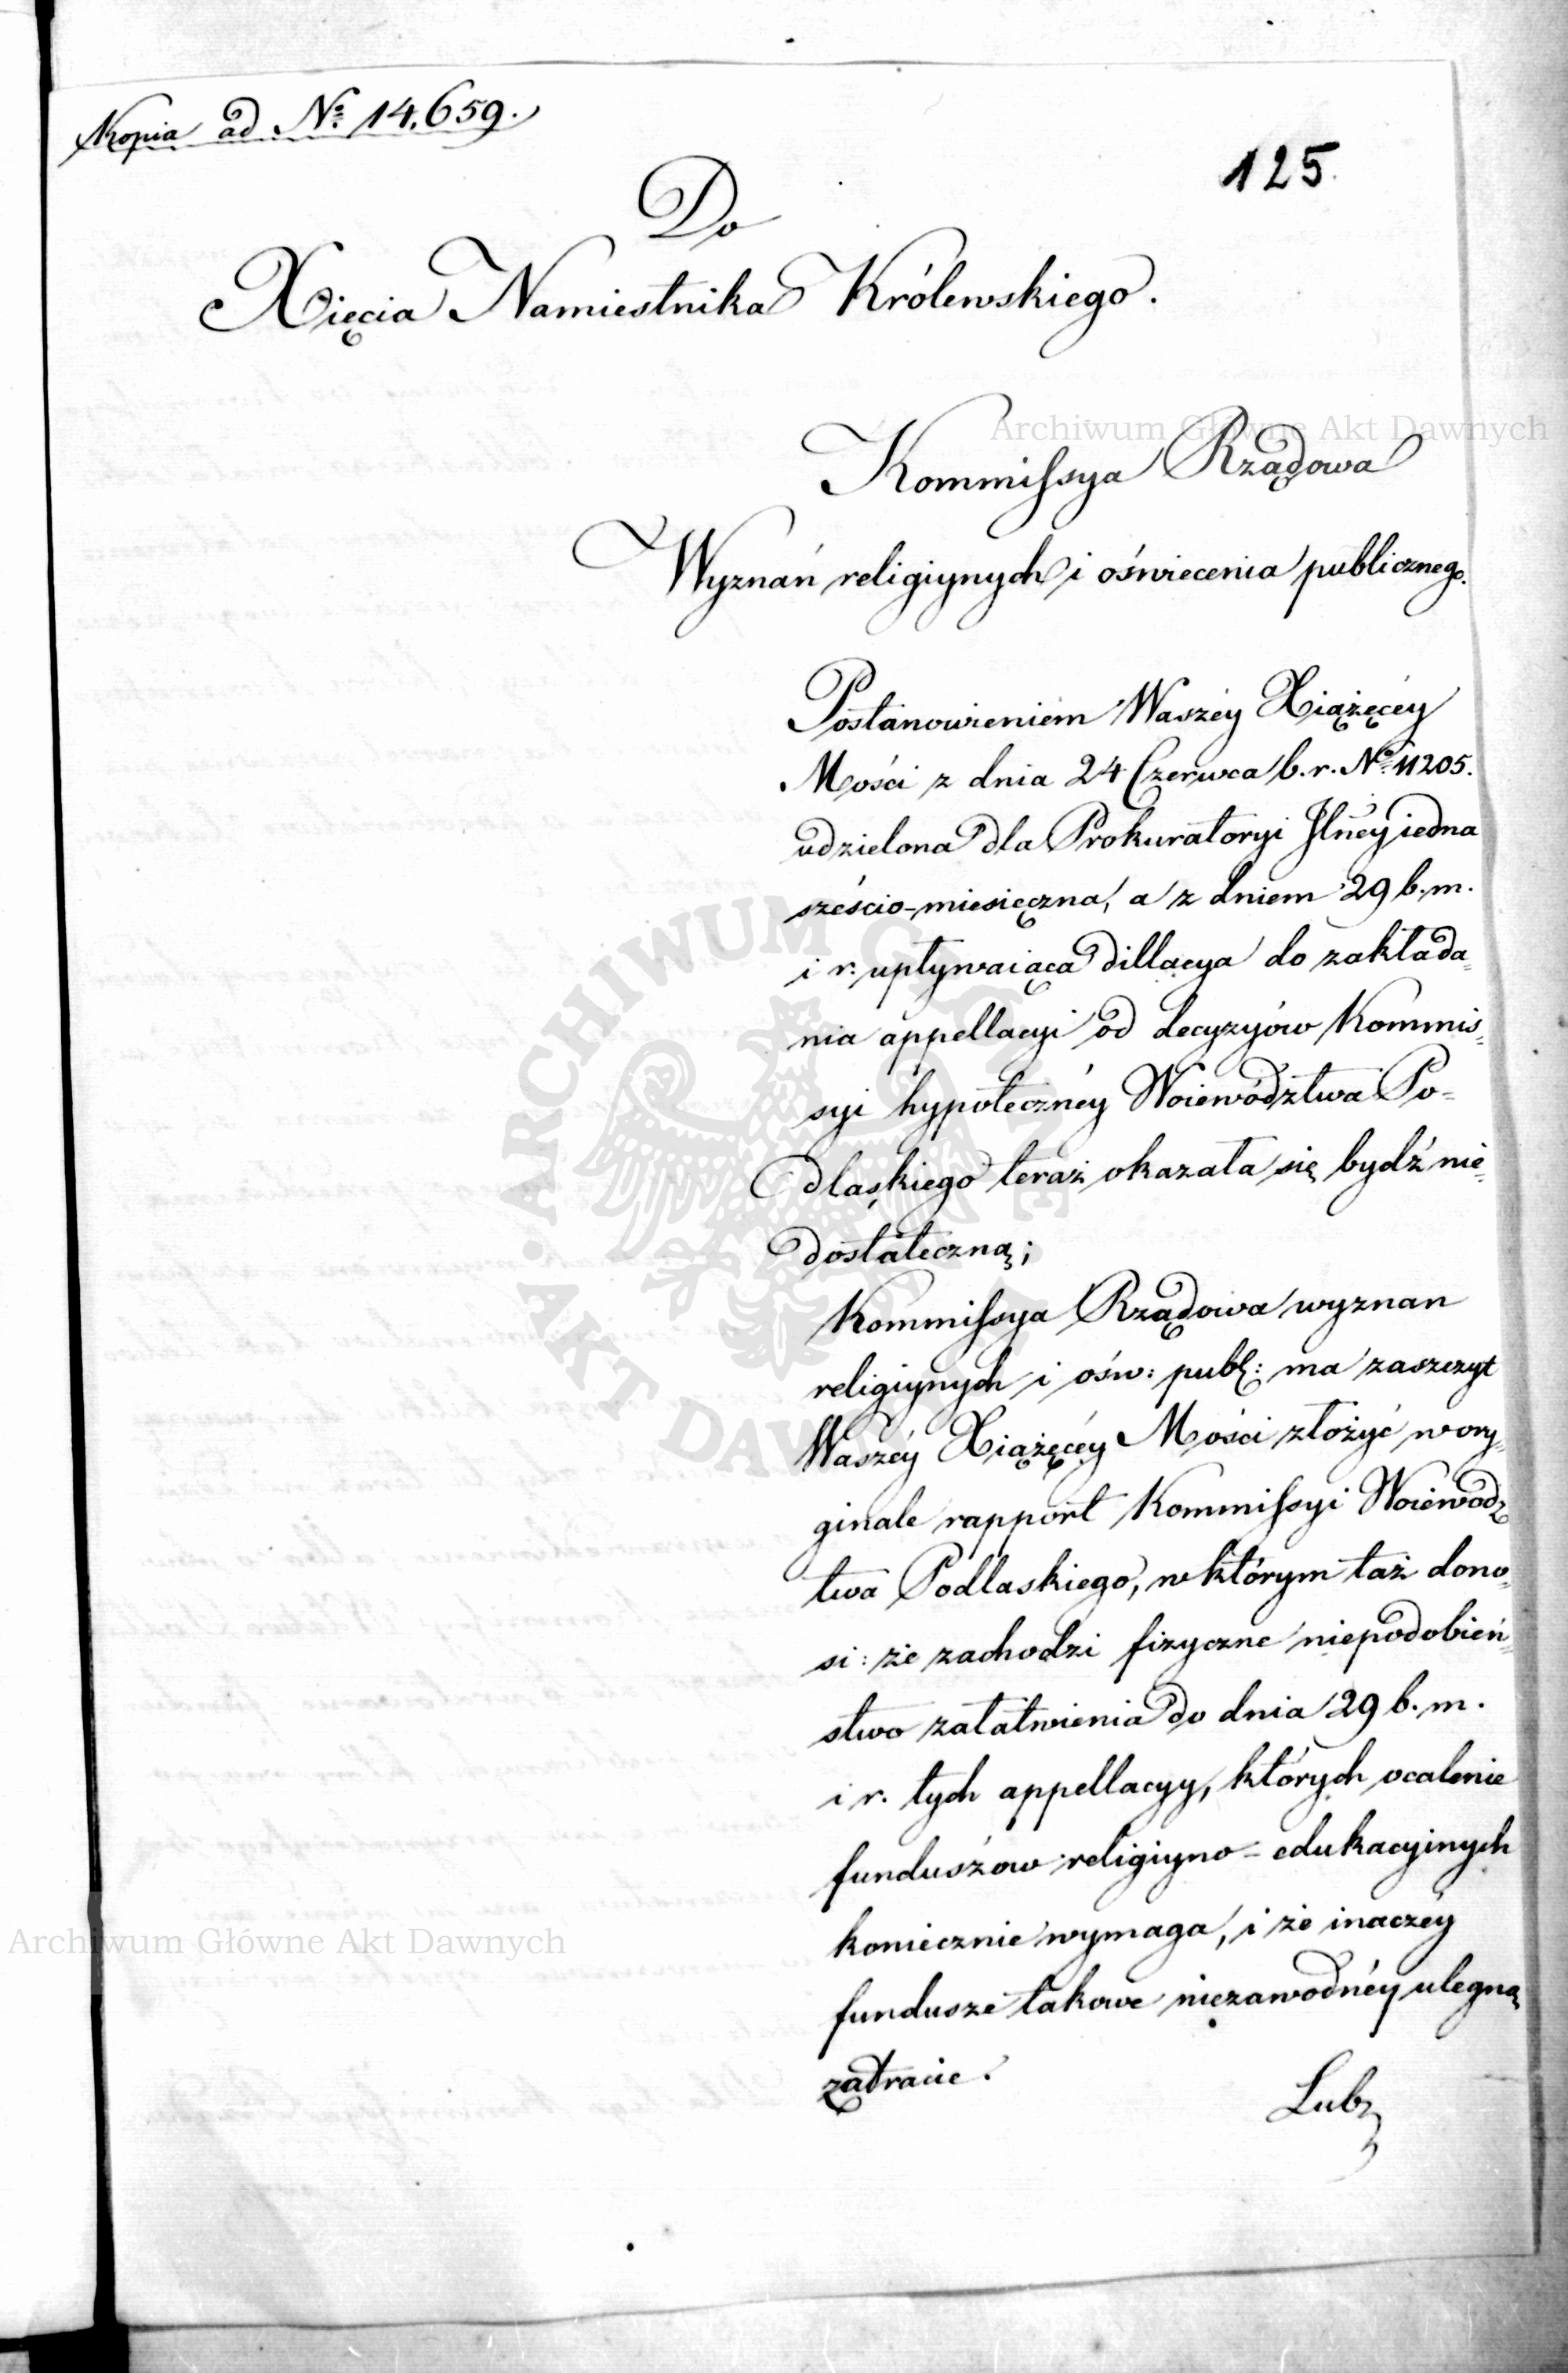 Kopia ad Nº 14,659.
125.
Do
Xięcia Namiestnika Królewskiego.
Archiwum Główne Akt Dawnych
Kommissya Rządowa
Wyznań religiynych i oświecenia publicznego.
Postanowieniem Waszéy Xiążęcéy
Mości z dnia 24 Czerwca b. r. Nº 11205.
udzielona dla Prokuratoryi Jlnéy iedna
sześcio-miesięczna, a z dniem 29 b. m.
i r. upływaiąca dillacya do zakłada=
nia appellacyi od decyzyów Kommis=
syi hypotecznéy Woiewództwa Po=
dlaskiego teraz okazała się bydź nie=
dostateczną;
Kommissya Rządowa wyznan
religiynych i ośw: publ: ma zaszczyt
Waszéy Xiążęcéy Mości złożyć w ory=
ginale rapport Kommissyi Woiewodz
twa Podlaskiego, w którym taż dono=
si: że zachodzi fizyczne niepodobień=
stwo załatwienia do dnia 29 b. m.
i r. tych appellacyy, których ocalenie
funduszow religiyno=edukacyinych
koniecznie wymaga, i że inaczéy
fundusze takowe niezawodnéy ulegną
zatracie.
Lub
Archiwum Główne Akt Dawnych
ARCHIWUM GŁÓWNE AKT DAWNYCH